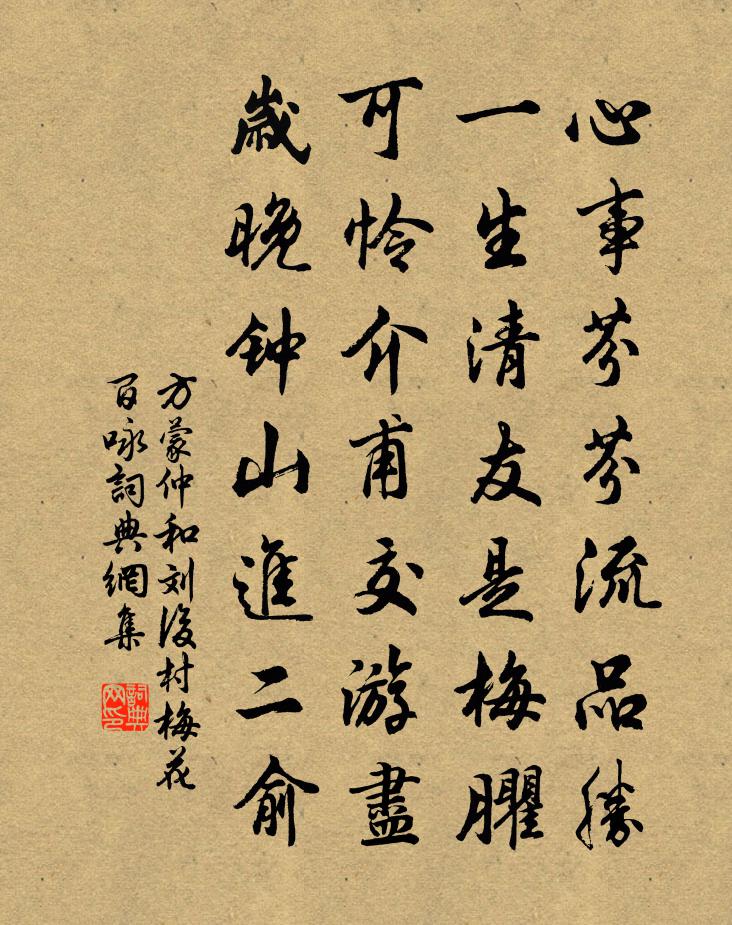 心事芬芬流品勝
一生清友是梅臞
可怜介甫交游盡
歳晚钟山進二俞
方蒙仲和刘後村梅花
百咏詞典網集
詞典网印